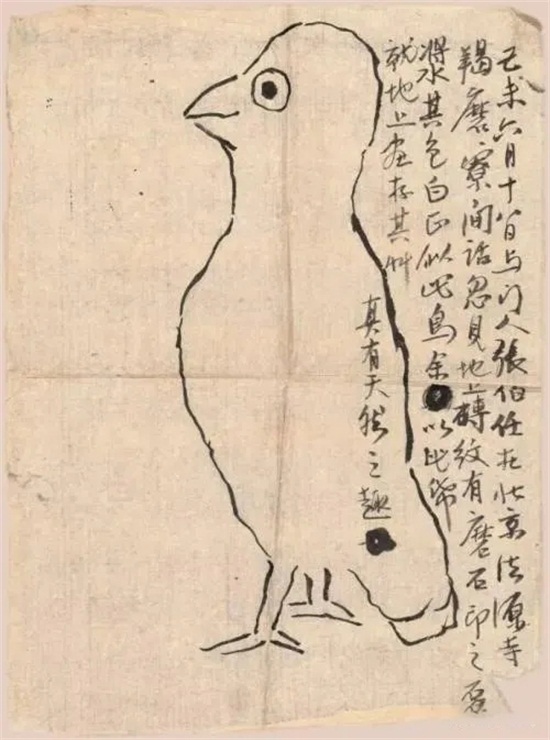 己未六月十八日与门人張伯任在北京法源寺
羯磨寮间話忽見地上磚紋有磨石印之石
漿其色白正似此鳥余以此帋
就地上画存其艸
真有天然之趣